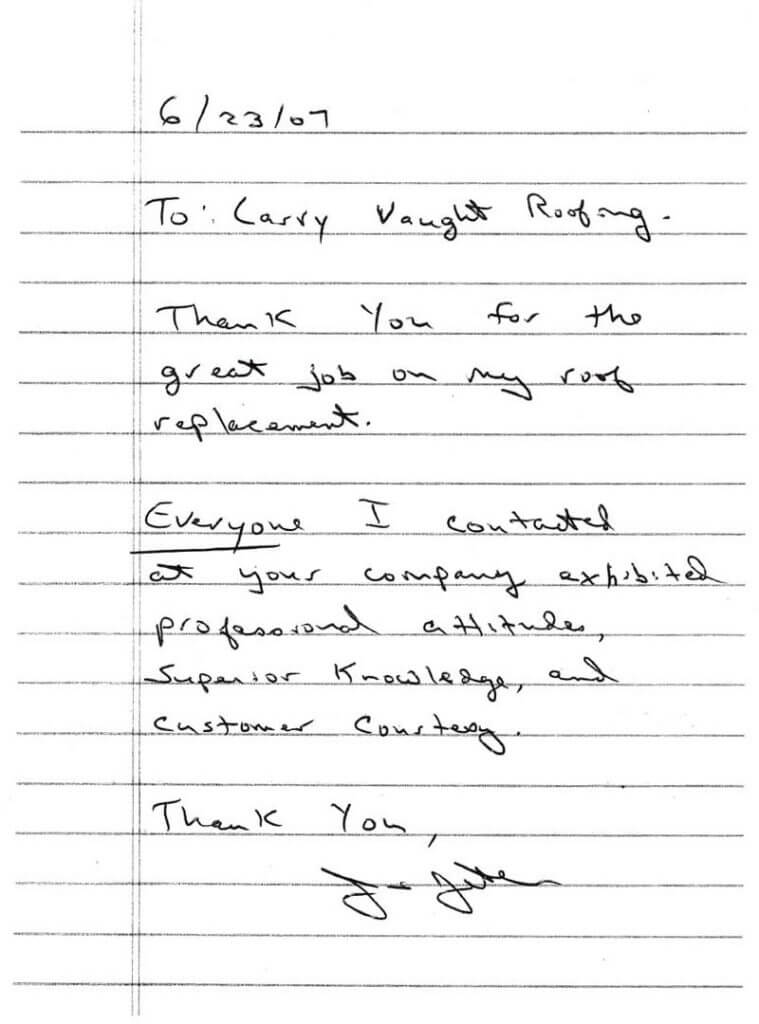 6/23/07
To: Larry Vaught Roofing.
Thank You for the
great job on my roof
replacement.
Everyone I contacted
at your company exhibited
professional attitudes,
Superior Knowledge, and
Customer Courtesy.
Thank You,